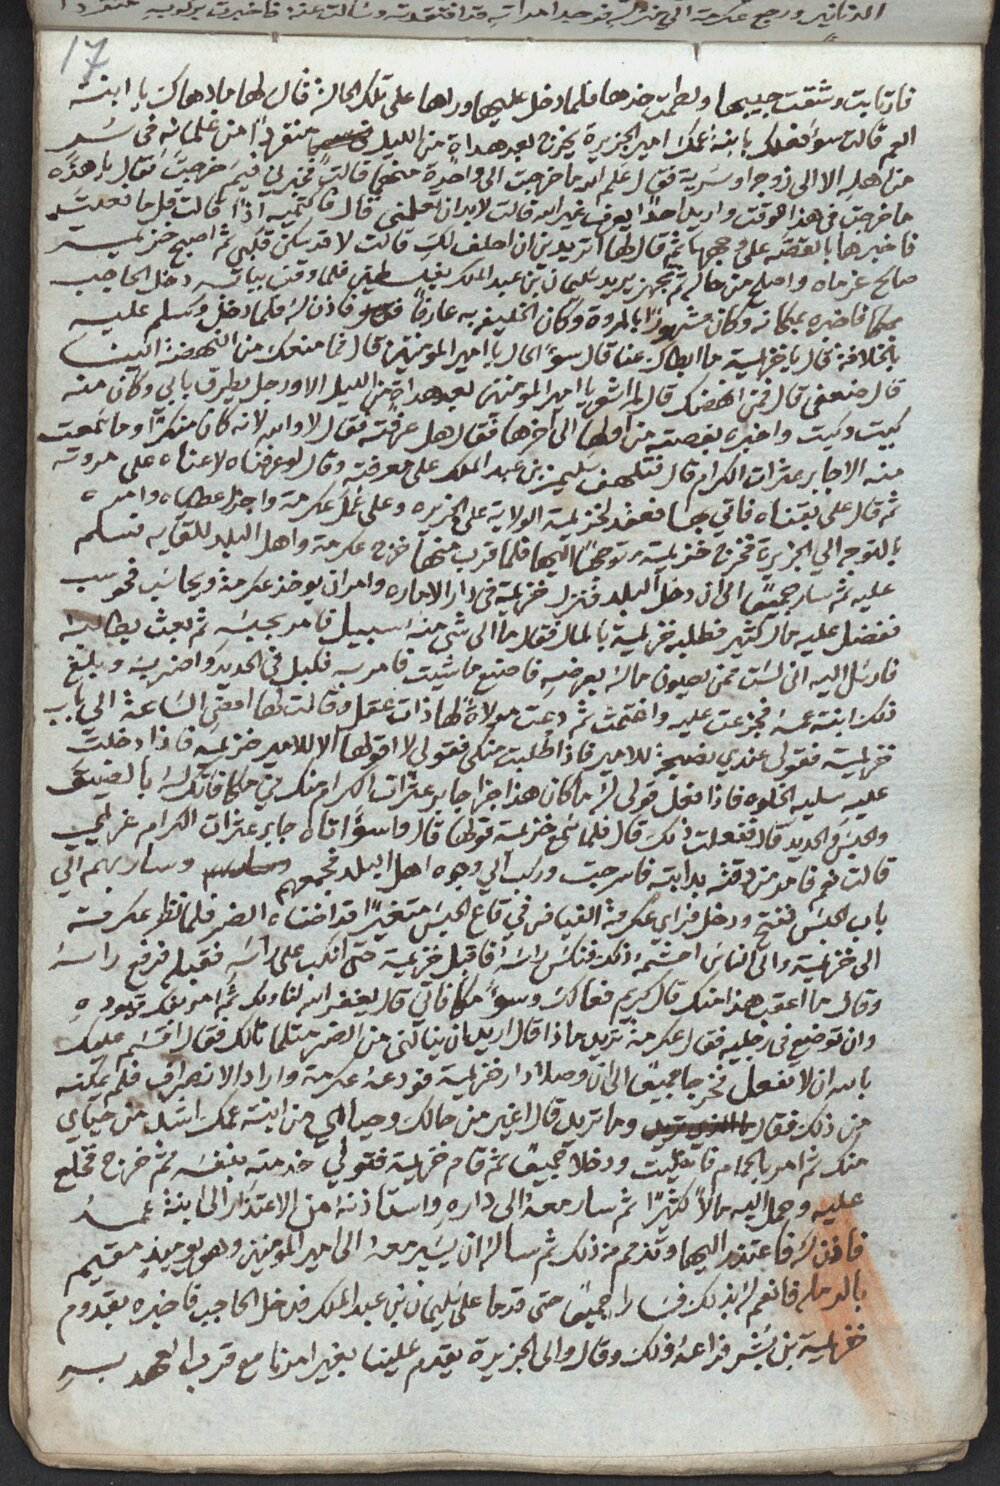 الدنانير ورجع عكرمة الى منزله فوجد امراته قد افتقدته وسالت عنه فاخبرت بركوبه منفردا
17
فارتابت وشقت جيبها ولطمت خدها فلما دخل عليها وراها على تلك الحالة قال لها ما دهاك يا ابنة
العم قالت سوء فعلك بابنة عمك امير الجزيرة يخرج بعد هداة من الليل منفردا من غلمانه في سر
من اهله الا الى زوجة او سرية فقال علم الله ما خرجت الى واحدة منهما قالت فخبرني فيم خرجت فقال يا هذه
ما خرجت في هذا الوقت واريد احدا يعرف غير الله قالت لا بد ان تعلمني قال فاكتميه اذا قالت قل ما فعلت
فاخبرها بالقصة على وجهها ثم قال لها اتريدين ان احلف لك قالت لا قد سكن قلبي ثم اصبح خزيمة
صالح غرماه واصلح من حاله ثم تجهز يريد سليمان بن عبد الملك بفلسطين فلما وقف ببابه دخل الحاجب
فاخبره بمكانه وكان مشهورا بالمروة وكان الخليفة به عارفا فاذن له فلما دخل وسلم عليه
بالخلافة قال يا خزيمة ما ابطاك عنا قال سوء الحال يا امير المومنين قال فما منعك من النهضة الينا
قال ضعفي قال فمن انهضك قال لم اشعر يا امير المومنين بعد هداة من الليل الا ورجل يطرق بابي وكان منه
كيت وكيت واخبره بقصته من اولها الى آخرها فقال هل عرفته فقال لا والله لانه كان متنكرا وما سمعت
منه الا جابر عثرات الكرام قال فتلهف سليمن بن عبد الملك على معرفته وقال لو عرفناه لاعناه على مروته
ثم قال على بقناه فاتي بها فعقد لخزيمة الولاية على الجزيره وعلى عمل عكرمة واجزل عطاه وامره
بالتوجه الى الجزيرة فخرج خزيمة متوجها اليها فلما قرب منها خرج عكرمة واهل البلد للقايه فسلم
عليه ثم سار جميعا الى ان دخل البلد فنزل خزيمة في دار الاماره وامر ان يوخذ عكرمة ويحاسب فحوسب
ففضل عليه مال كثير فطلبه خزيمة بالمال فقال ما الى شي منه سبيل فامر بحبسه ثم بعث يطالبه
فارسل اليه انى لست ممن يصون ماله بعرضه فاصنع ما شيت فامر به فكبل في الحديد واضر به وبلغ
ذلك ابنة عمه فجزعت عليه واغتمت ثم دعت مولاة لها ذات عقل وقالت لها امضي الساعة الى باب
خزيمة فقولى عندي نصيحة للامير فاذا طلبت منكى فقولى لا اقولها الا للامير خزيمة فاذا دخلت
عليه سليه الخلوه فاذا فعل قولى له ما كان هذا جزا جابر عثرات الكرام منك في مكافاتك له بالضيق
والحبس والحديد قال ففعلت ذلك قال فلما سمع خزيمة قولها قال واسوأتاه جابر عثرات الكرام غريمي
قالت نعم فامر من وقته بدابته فاسرجت وركب الى وجوه اهل البلد فجمعهم وسار بهم الى
باب الحبس ففتح ودخل فراى عكرمة الفياض في قاع الحبس متغيرا قد اضناه الضر فلما نظر عكرمة
الى خزيمة والى الناس احشمه ذلك فنكس راسه فاقبل خزيمة حتى انكب على راسه فقبله فرفع راسه
وقال ما اعقب هذا منك قال كريم فعالك وسوء مكافاتي قال يغفر الله لنا ولك ثم امر بفك قيوده
وان توضع في رجليه فقال عكرمة تريد ماذا قال اريد ان ينالنى من الضر مثلما نالك فقال اقسم عليك
بالله ان لا تفعل فخرجا جميعا الى ان وصلا دار خزيمة فودعه عكرمة واراد الانصراف فلم يمكنه
من ذلك فقال وما تريد قال اغير من حالك وحيائي من ابنة عمك اشد من حيائي
منك ثم امر بالحمام فاخليت ودخلا جميعا ثم قام خزيمة فتولى خدمته بنفسه ثم خرج فخلع
عليه وحمل اليه مالا كثيرا ثم سار معه الى داره واستاذنه من الاعتذار الى ابنة عمه
فاذن له فاعتذر اليها وتذمم من ذلك ثم ساله ان يسير معه الى امير المومنين وهو يوميذ مقيم
بالرمله فانعم له بذلك فسارا جميعا حتى قدما على سليمان بن عبد الملك فدخل الحاجب فاخبره بقدوم
خزيمة بن بشر فراعه ذلك وقال والى الجزيرة يقدم علينا بغير امرنا مع قرب العهد به